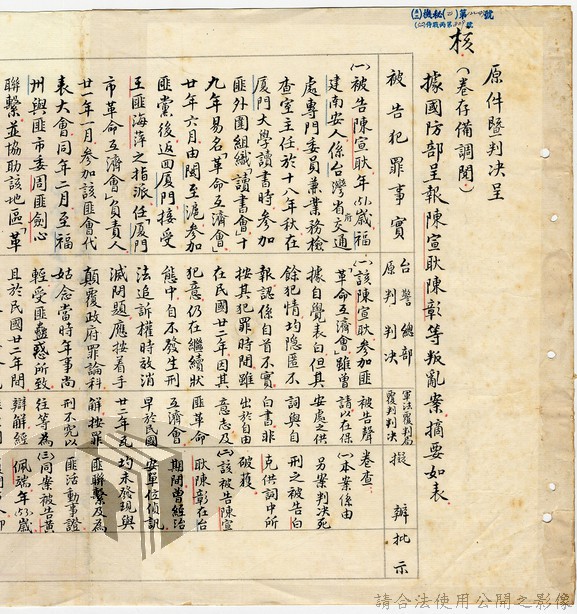 原件暨判决呈
核(卷存備調閱)
據國防部呈報陳宣耿陳彰等叛亂案摘要如表
被告犯罪事實
(一)被告陳宣耿年(51)歲福
建南安人係台灣省交通
處專門委員兼業務檢
查室主任於十八年秋在
厦門大學讀書時參加
匪外圍組織「讀書會」十
九年易名「革命互濟會」
廿年六月由閩至滬參加
匪黨後返回厦門接受
王匪海萍之指派任「厦門
市革命互濟會」負責人
廿一年一月參加該匪會代
表大會同年二月至福
州與匪市委周匪劍心
聯繫並協助該地區「革
台警總部
原判判决
(一)該陳宣耿參加匪
「革命互濟會」雖曾
據自覺表白但其
餘犯情均隱匿不
報認係自首不實
按其犯罪時間雖
在民國廿二年因其
犯意仍在繼續狀
態中自不發生刑
法追訴權時效消
滅問題應按着手
顛覆政府罪論科
姑念當時年事尚
輕受匪蠱惑所致
且於民國廿二年閏
軍法覆判局
覆判判决
被告聲
請以在保
安處之供
詞與自
白書非
出於自由
意志及
匪革命
互濟會
早於民國
廿二年瓦
解按罪
刑不宪以
往等為
辯解經
擬辦
卷查:
(一)本案係由
另案判决死
刑之被告白
克供詞中所
破獲
(二)該被告陳宣
耿陳彰在治
期間曾經治
安單位偵訊
均未發現與
匪聯繫及為
匪活動事證
(三)同案被告黃
佩端年(53)歲
批示
請合法使用公開之影像